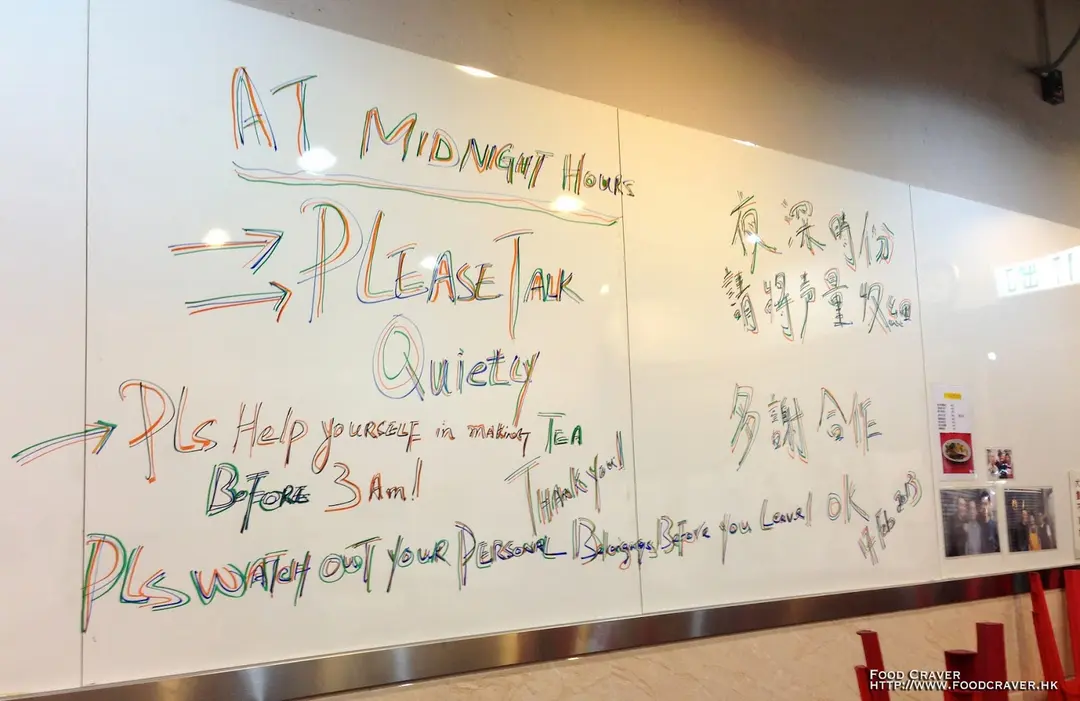 AT MIDNIGHT HOURS
PLEASE TALK
Quietly
PLs Help YOURSELF in making TEA
BEFORE 3 Am!
THANK you!
PLS WATCH OUT YOUR PERSONAL Belongings Before you Leave! OK
夜深時份
請將声量收細
多謝合作
Feb 2013
FOOD CRAVER
HTTP://WWW.FOODCRAVER.HK